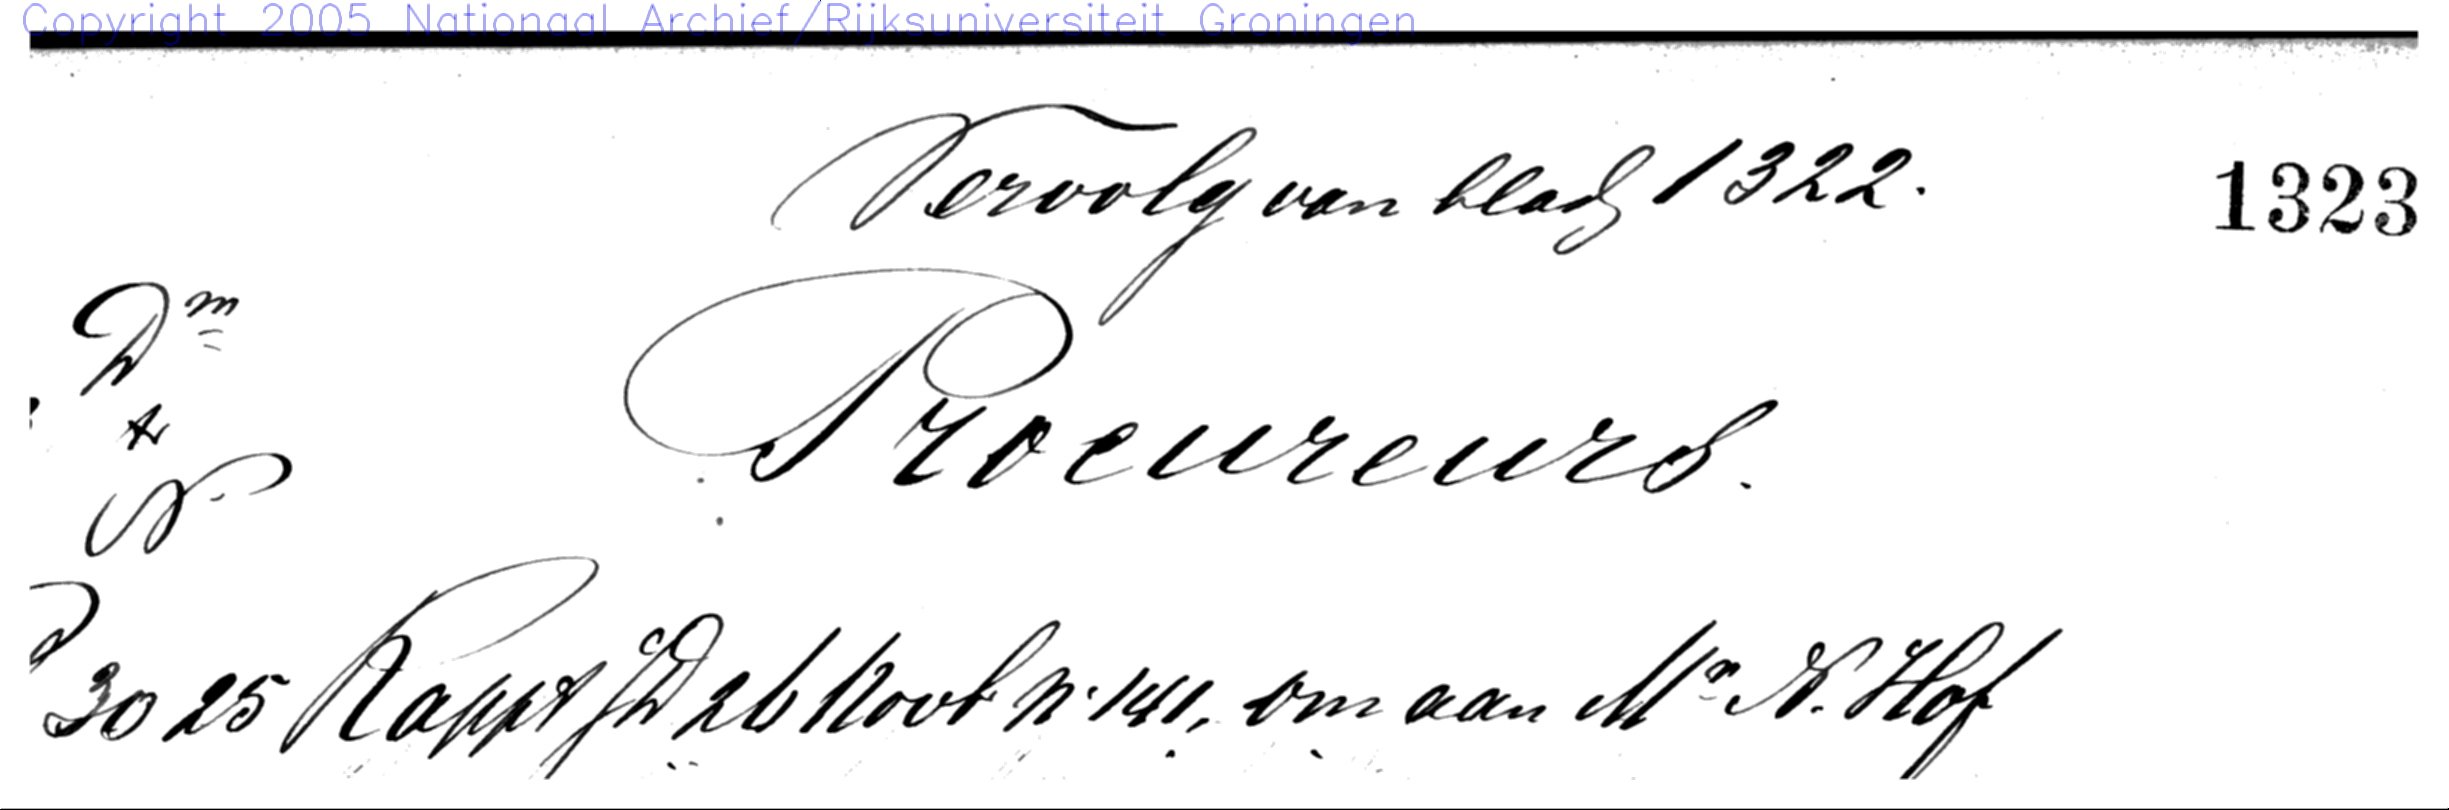 Copyright 2005 Nationaal Archief/Rijksuniversiteit Groningen
Vervolg van bladz 1322. 1323
Dm
N.
Procureurs.
30 25 Rappt JD 26 Novb n. 141, om aan Mr N. Hof